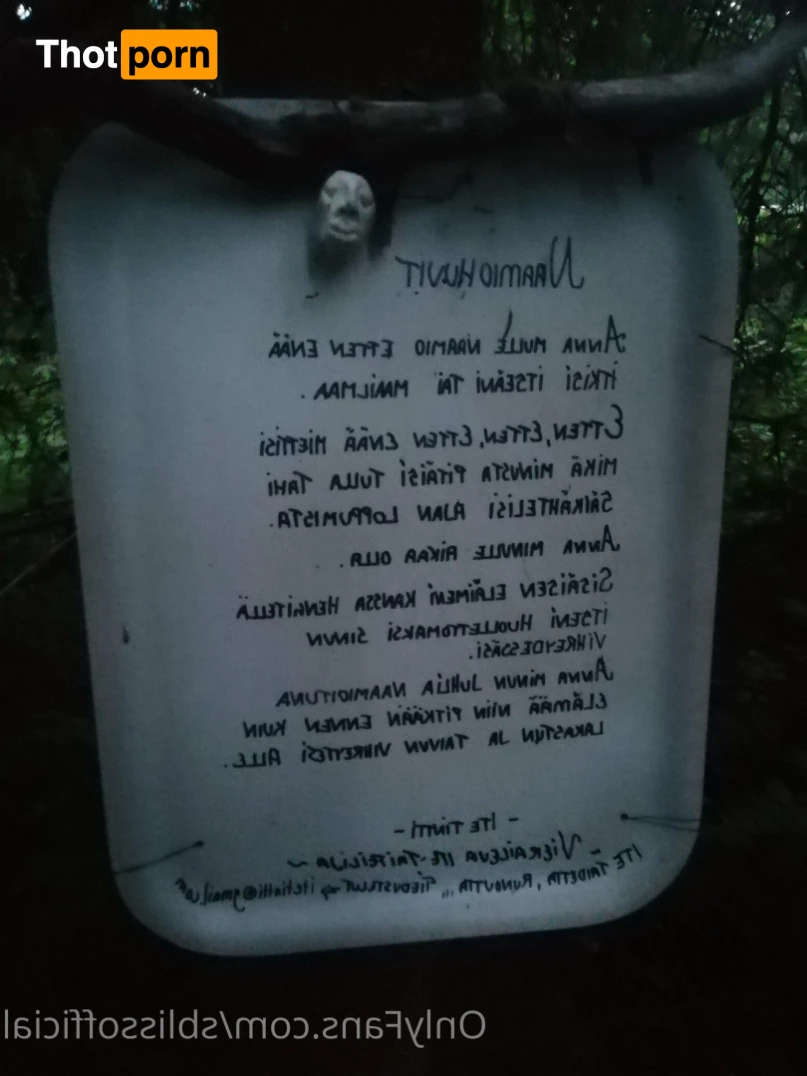 Thot porn
NAAMIOHUVIT
ANNA MULLE NAAMIO ETTEN ENÄÄ
ITKISI ITSEÄNI TAI MAAILMAA.
ETTEN, ETTEN, ETTEN ENÄÄ MIETTISI
MIKÄ MINUSTA PITÄISI TULLA TAHI
SÄIKÄHTELISI AJAN LOPPUMISTA.
ANNA MINULLE AIKAA OLLA.
SISÄISEN ELÄIMENI KANSSA HENKITELLÄ
ITSENI HUOLETTOMAKSI SINUN
VIHREYDESSÄSI.
ANNA MINUN JUHLIA NAAMIOITUNA
ELÄMÄÄ NIIN PITKÄÄN ENNEN KUIN
LAKASTUN JA TAIVUN VIHREYTESI ALLE.
- ITE TINTTI -
- VIERAILEVA ITE-TAITEILIJA ~
ITE TAIDETTA, RUNOUTTA
OnlyFans.com/sblissofficial